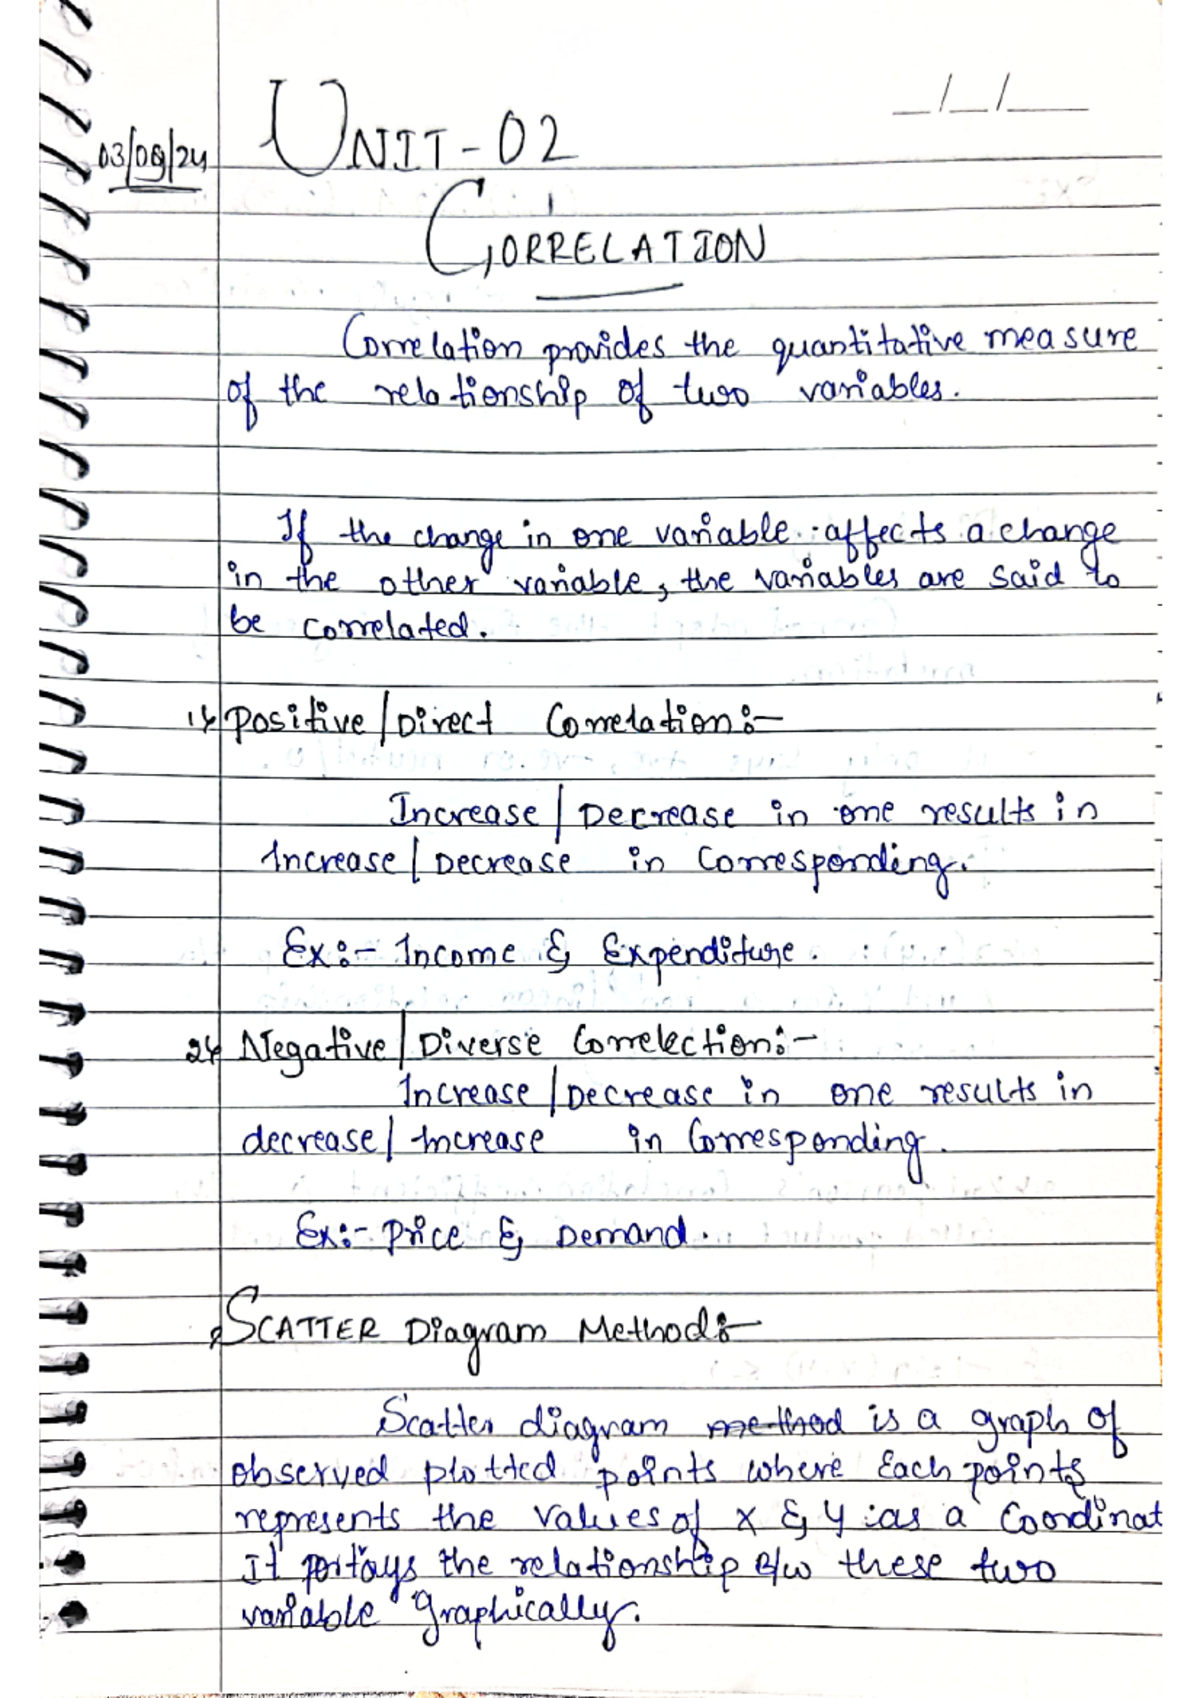 _/_/___
03/09/24 UNIT-02
CORRELATION
Correlation provides the quantitative measure
of the relationship of two variables.
If the change in one variable affects a change
in the other variable, the variables are said to
be correlated.
1. Positive/Direct Correlation:-
Increase/Decrease in one results in
Increase/Decrease in Corresponding.
Ex:- Income & Expenditure.
2. Negative/Diverse Correlection:-
Increase/Decrease in one results in
decrease/Increase in Corresponding.
Ex:- Price & Demand.
SCATTER Diagram Method:-
Scatter diagram method is a graph of
observed plotted points where Each points
represents the values of x & y as a Coordinat
It portays the relationship b/w these two
variable graphically.